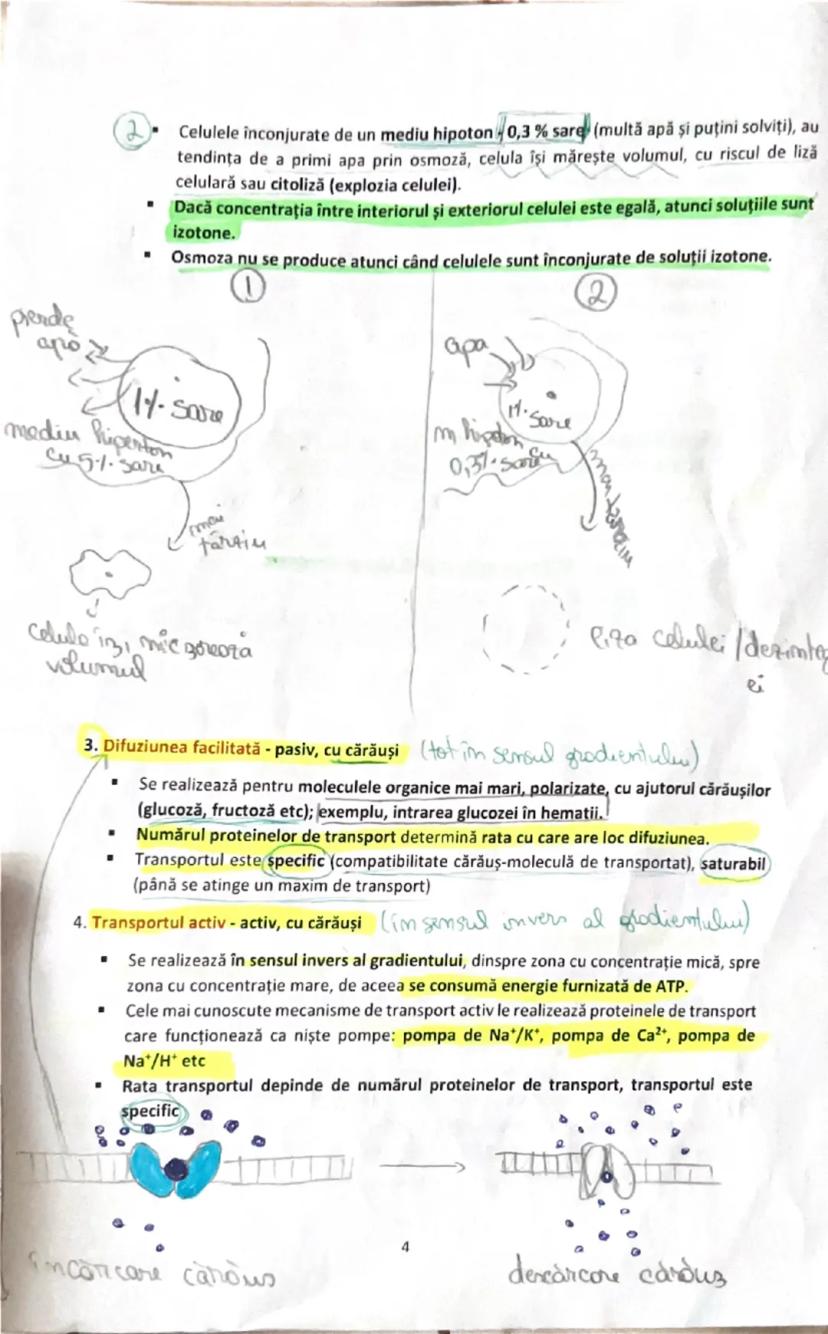 2
▪ Celulele înconjurate de un mediu hipoton - 0,3 % sare (multă apă și puțini solviți), au
tendința de a primi apa prin osmoză, celula își mărește volumul, cu riscul de liză
celulară sau citoliză (explozia celulei).
▪ Dacă concentrația între interiorul și exteriorul celulei este egală, atunci soluțiile sunt
izotone.
▪ Osmoza nu se produce atunci când celulele sunt înconjurate de soluții izotone.
1
pierde
apă
1% sare
mediu hiperton
cu 5% sare
mai
târziu
celula își micșorează
volumul
2
apa
1% sare
m hipoton
cu
0,3% sare
mai târziu
liza celulei /
ei
3. Difuziunea facilitată - pasiv, cu cărăuși (tot în sensul gradientului)
▪ Se realizează pentru moleculele organice mai mari, polarizate, cu ajutorul cărăușilor
(glucoză, fructoză etc); exemplu, intrarea glucozei în hematii.
▪ Numărul proteinelor de transport determină rata cu care are loc difuziunea.
▪ Transportul este specific (compatibilitate cărăuș-moleculă de transportat), saturabil
(până se atinge un maxim de transport)
4. Transportul activ - activ, cu cărăuși (în sensul invers al gradientului)
▪ Se realizează în sensul invers al gradientului, dinspre zona cu concentrație mică, spre
zona cu concentrație mare, de aceea se consumă energie furnizată de ATP.
▪ Cele mai cunoscute mecanisme de transport activ le realizează proteinele de transport
care funcționează ca niște pompe: pompa de Na⁺/K⁺, pompa de Ca²⁺, pompa de
Na⁺/H⁺ etc
▪ Rata transportul depinde de numărul proteinelor de transport, transportul este
specific
încărcare cărăus
descărcare cărăuș
4